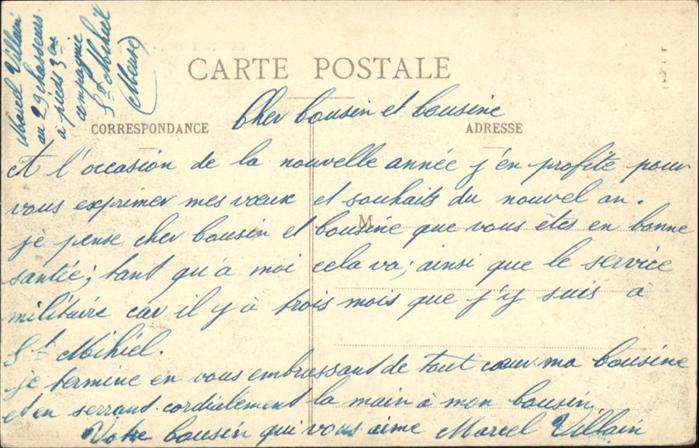 Marcel Villain
au 29 chasseurs
à pieds 3me
Compagnie
St Mihiel
(Meuse)
CARTE POSTALE
CORRESPONDANCE
ADRESSE
M
Cher Cousin et Cousine
A l'occasion de la nouvelle année j'en profite pour
vous exprimer mes vœux et souhaits du nouvel an.
je pense cher Cousin et Cousine que vous êtes en bonne
santée; tant qu'à moi cela va; ainsi que le service
militaire car il y à trois mois que j'y suis à
St Mihiel.
je termine en vous embrassant de tout cœur ma Cousine
et en serrant cordialement la main à mon Cousin.
Votre Cousin qui vous aime Marcel Villain